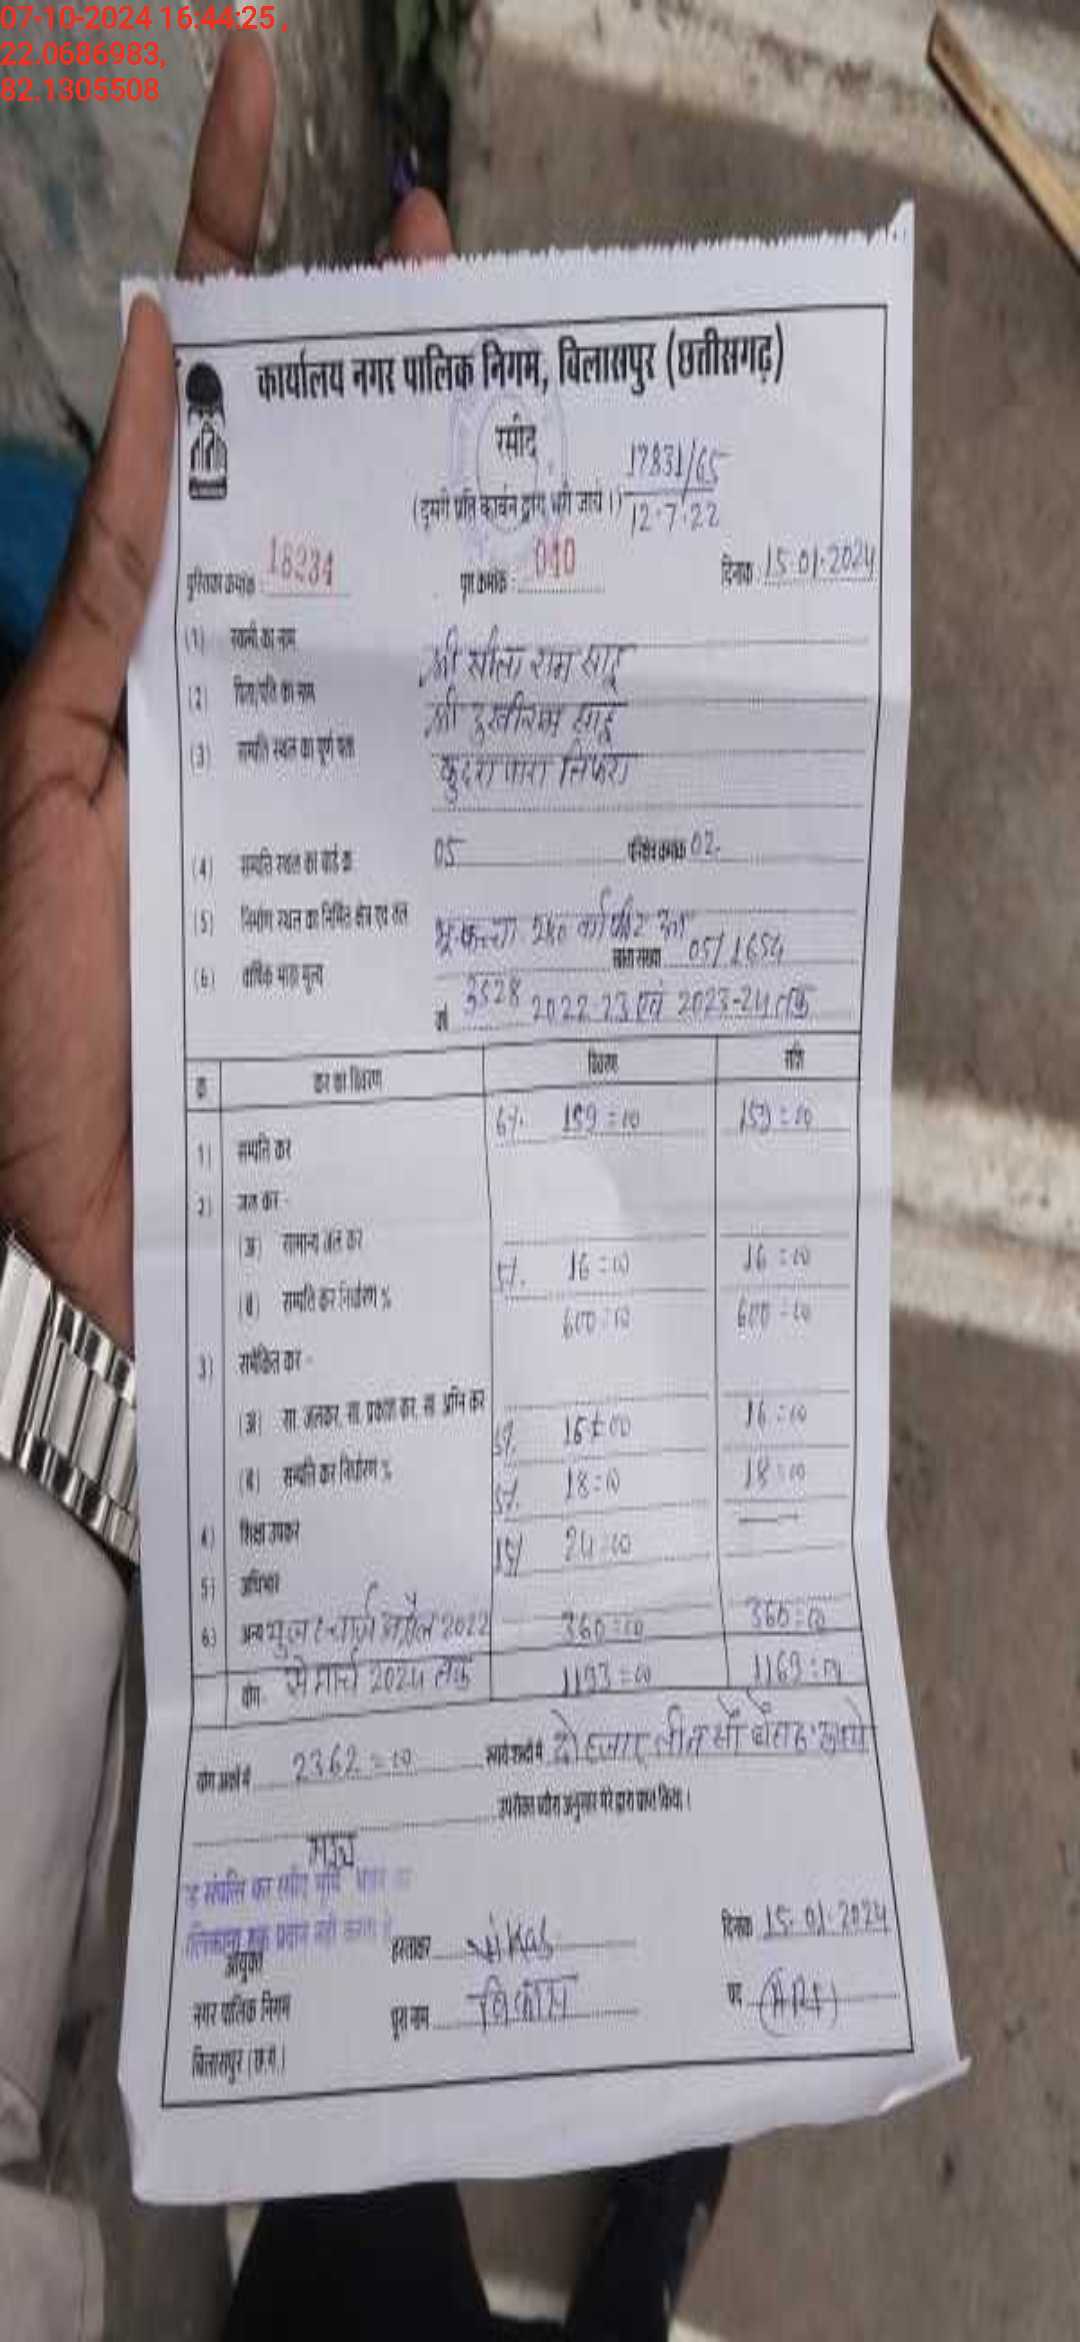 07-10-2024 16:44:25,
22.0686983,
82.1305508
कार्यालय नगर पालिक निगम, बिलासपुर (छत्तीसगढ़)
रसीद
17831/65
(दूसरी प्रति कार्बन द्वारा भरी जावे।) 12.7.22
पुस्तिका क्रमांक 18234 पृष्ठ क्रमांक 040 दिनांक 15.01.2024
(1) स्वामी का नाम श्री सीता राम साहू
(2) पिता/पति का नाम श्री दुखीराम साहू
(3) सम्पत्ति स्थल का पूर्ण पता कुदरा पारा तिफरा
(4) सम्पत्ति स्थल का वार्ड क्र 05 परिक्षेत्र क्रमांक 02
(5) निर्माण स्थल का निर्मित क्षेत्र एवं तल 280
(6) वार्षिक भाड़ा मूल्य 3528 खाता संख्या 05/1654
वर्ष 2022-23 एवं 2023-24 तक
क्र कर का विवरण विवरण राशि
1) सम्पत्ति कर 6%. 159=00 159=00
2) जल कर -
(अ) सामान्य जल कर
(ब) सम्पत्ति कर निर्धारण % 16=00 16=00
600=00 600=00
3) समेकित कर -
(अ) सा. जलकर, सा. प्रकाश कर, सा. अग्नि कर
(ब) सम्पत्ति कर निर्धारण % 16=00 16=00
4) शिक्षा उपकर 18=00 18=00
5) अधिभार 24=00
6) अन्य यूजर चार्ज अप्रैल 2022 360=00 360=00
योग- से मार्च 2024 तक 1193=00 1169=00
योग अंकों में 2362=00 रुपये शब्दों में दो हजार तीन सौ बासठ रुपये
मात्र उपरोक्त ब्यौरा अनुसार मेरे द्वारा प्राप्त किया।
आयुक्त
नगर पालिक निगम
बिलासपुर (छ.ग.)
हस्ताक्षर दिनांक 15.01.2024
पूरा नाम विकास पद